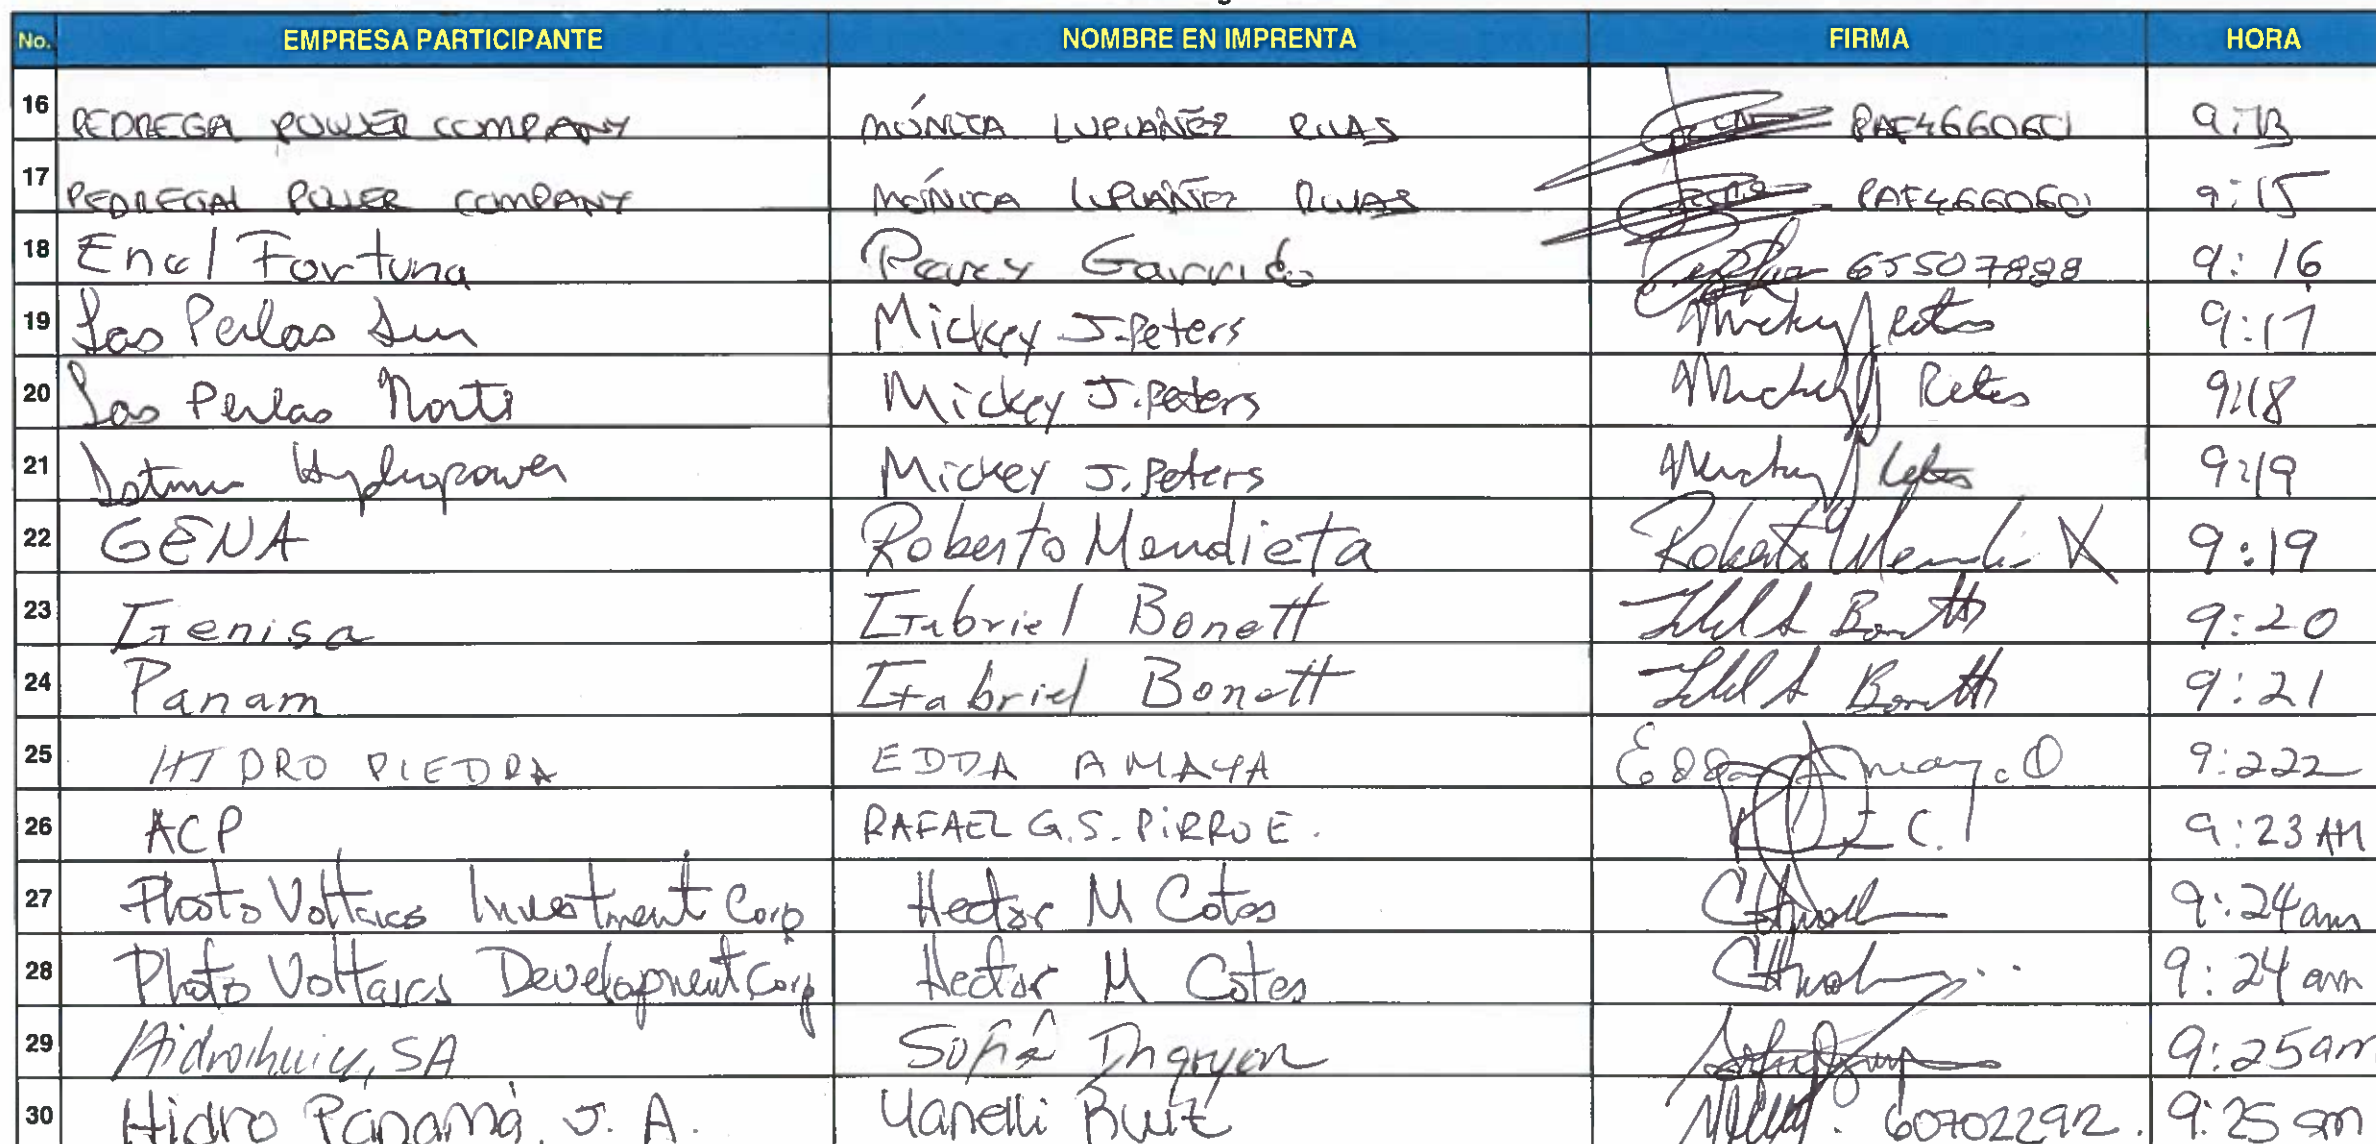 No. EMPRESA PARTICIPANTE NOMBRE EN IMPRENTA FIRMA HORA
16 PEDREGAL POWER COMPANY MÓNICA LUPIAÑEZ RIVAS PAF466060 9:13
17 PEDREGAL POWER COMPANY MÓNICA LUPIAÑEZ RIVAS PAF466060 9:15
18 Enel Fortuna Garrido 65507888 9:16
19 Las Perlas Sur Mickey J. Peters Mickey J Peters 9:17
20 Las Perlas Norte Mickey J. Peters Mickey J Peters 9:18
21 Hydropower Mickey J. Peters Mickey J Peters 9:19
22 GENA Roberto Mendieta Roberto 9:19
23 Genisa Gabriel Bonett Bonett 9:20
24 Panam Gabriel Bonett Bonett 9:21
25 HIDRO PIEDRA EDDA AMAYA Edda Amaya 9:222
26 ACP RAFAEL G.S. PIRRO E. 9:23 AM
27 Photo Voltaics Investment Corp Hector M Cotes 9:24 am
28 Photo Voltaics Development Corp Hector M Cotes 9:24 am
29 SA Sofía 9:25 am
30 Hidro Panamá, S. A. Yanelli Ruiz 60702292. 9:25 am